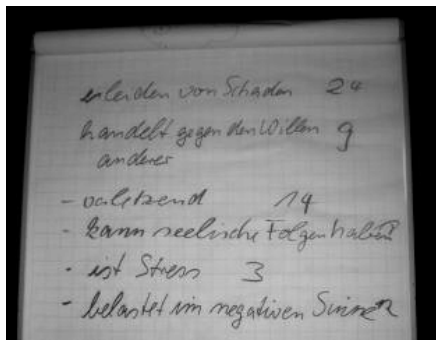 erleiden von Schaden 24
handelt gegen den Willen 9
anderer
- verletzend 14
- kann seelische Folgen haben
- ist Stress 3
- belastet im negativen Sinne